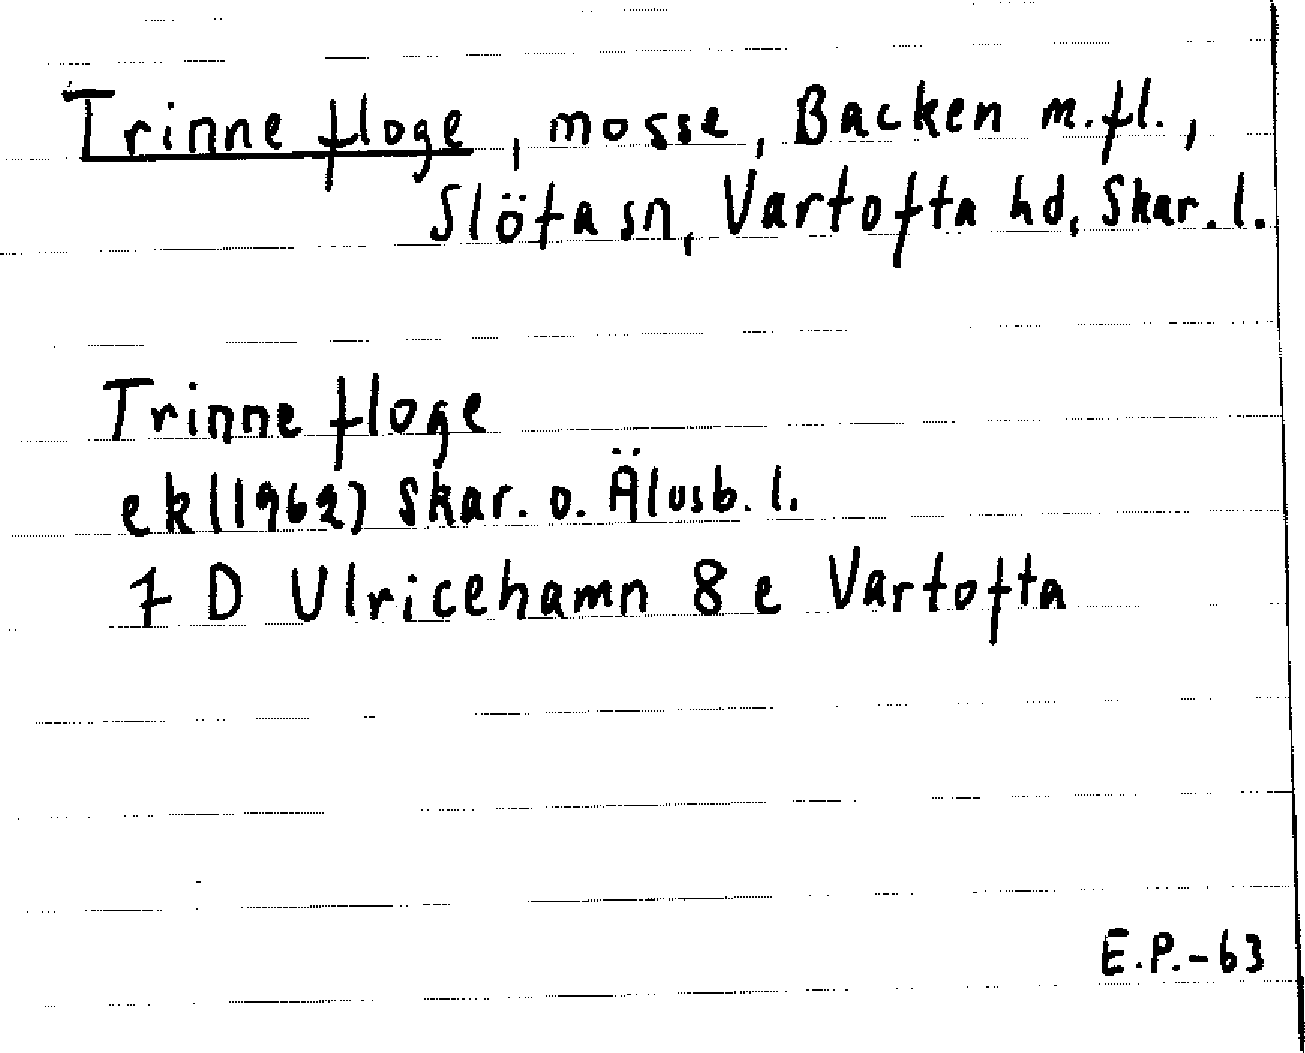 Trinne floge, mosse, Backen m.fl.,
Slöta sn, Vartofta hd, Skar. l.
Trinne floge
ek (1962) Skar. o. Älvsb. l.
7 D Ulricehamn 8 e Vartofta
E.P.-63